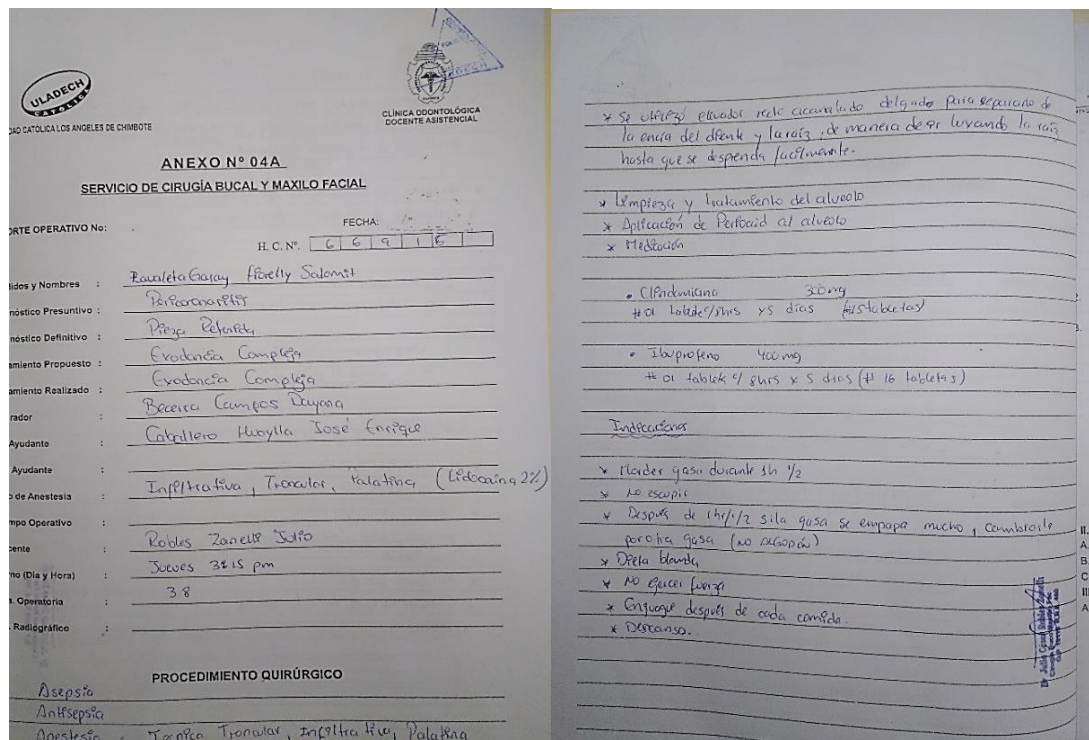 ULADECH
CATÓLICA
DAD CATÓLICA LOS ANGELES DE CHIMBOTE
CLÍNICA ODONTOLÓGICA
DOCENTE ASISTENCIAL
ANEXO Nº 04A
SERVICIO DE CIRUGÍA BUCAL Y MAXILO FACIAL
ORTE OPERATIVO No:
FECHA:
H. C. Nº. 6 6 9 1 6
lidos y Nombres : Zavaleta Garay Fiorelly Salomit
nóstico Presuntivo : Pericoronaritis
nóstico Definitivo : Pieza Retenida
amiento Propuesto : Exodoncia Compleja
amiento Realizado : Exodoncia Compleja
rador : Becerra Campos Dayana
Ayudante : Caballero Huaylla José Enrique
Ayudante :
o de Anestesia : Infiltrativa, Troncular, Palatina (Lidocaina 2%)
mpo Operativo :
cente : Robles Zanelli Julio
no (Día y Hora) : Jueves 3:15 pm
. Operatoria : 38
. Radiográfico :
PROCEDIMIENTO QUIRÚRGICO
Asepsia
Antisepsia
Anestesia : Tecnica Troncular, Infiltrativa, Palatina
* Se utilizó elevador recto acanalado delgado para separarlo de
la encia del diente y la raíz, de manera de ir luxando la raíz
hasta que se desprenda facilmente.
* Limpieza y tratamiento del alveolo
* Aplicación de al alveolo
* Medicación
• Clindamicina 300mg
# 01 c/8hrs x5 dias (#15 tabletas)
• Ibuprofeno 400 mg
# 01 tableta c/ 8hrs x 5 dias (# 16 tabletas)
Indicaciones
* Morder gasa durante 1h 1/2
* No escupir
* Después de 1hr/1/2 si la gasa se empapa mucho, cambiarla
por otra gasa (NO ALGODÓN)
* Dieta blanda
* No ejercer fuerza
* Enjuague después de cada comida.
* Descanso.
II.
A
B
C
III
A